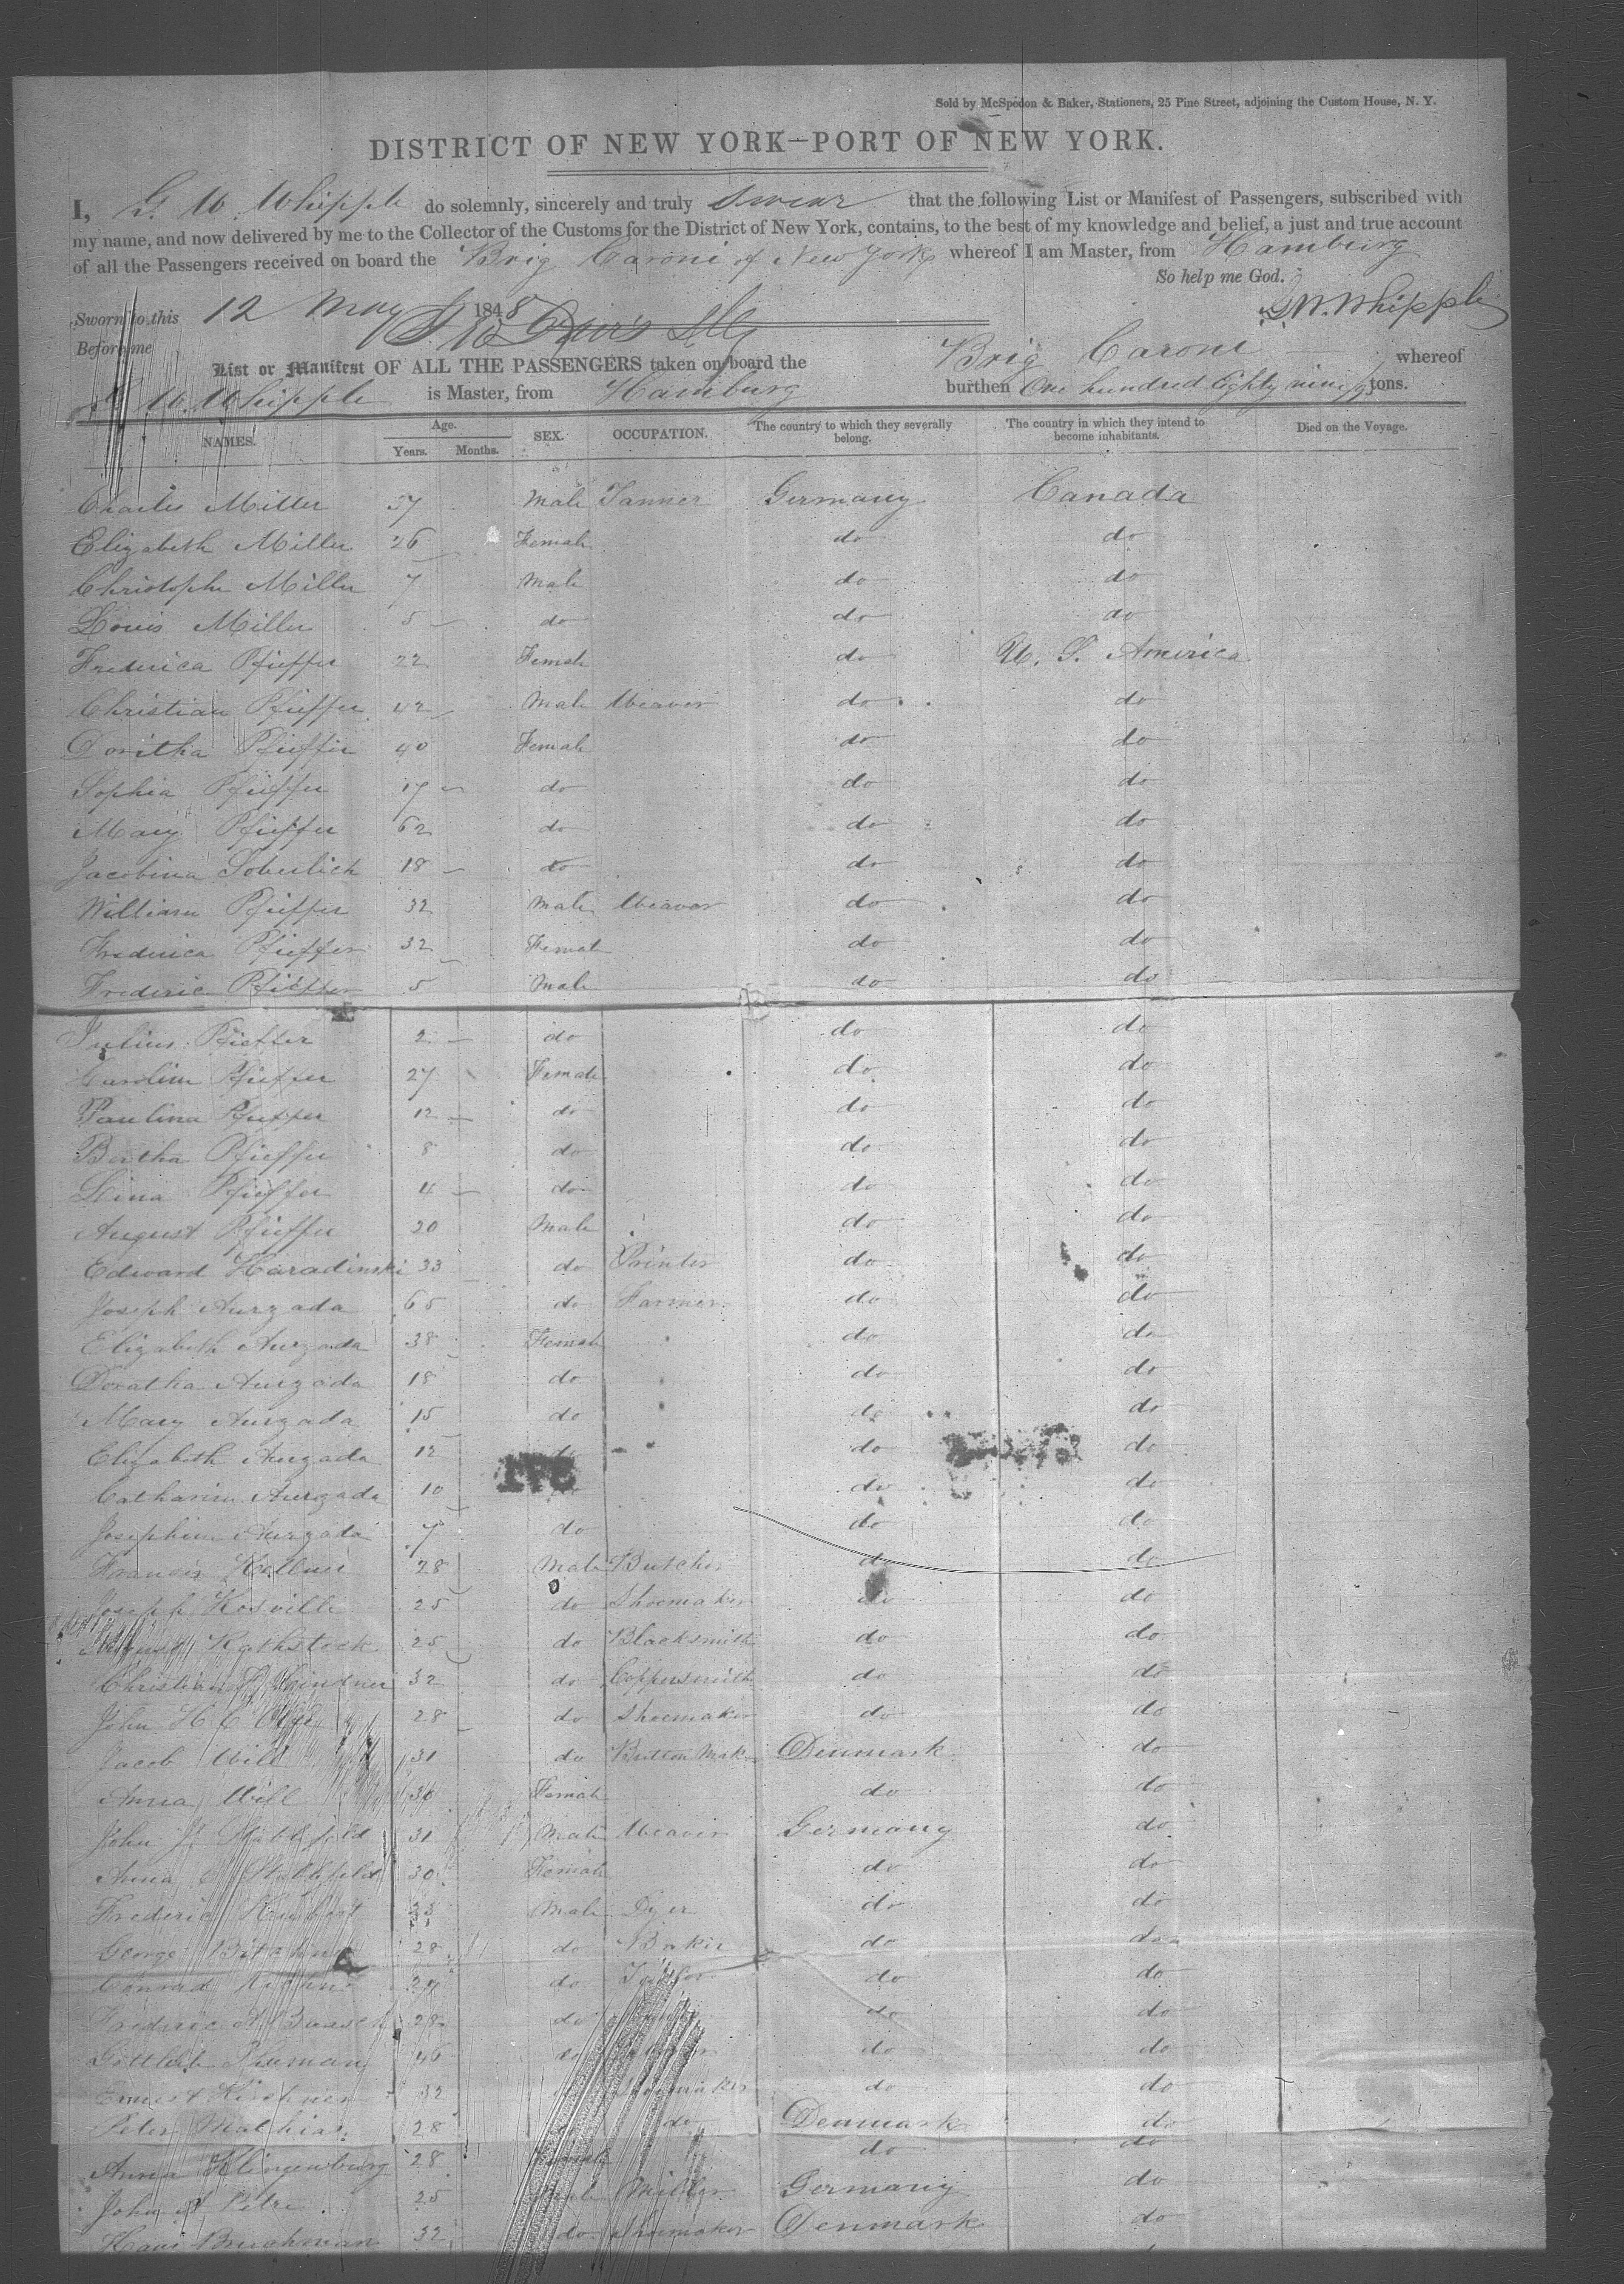 Sold by McSpedon & Baker, Stationers, 25 Pine Street, adjoining the Custom House, N. Y.
DISTRICT OF NEW YORK—PORT OF NEW YORK.
I, G. W. Whipple do solemnly, sincerely and truly swear that the following List or Manifest of Passengers, subscribed with
my name, and now delivered by me to the Collector of the Customs for the District of New York, contains, to the best of my knowledge and belief, a just and true account
of all the Passengers received on board the Brig Caroni of New York whereof I am Master, from Hamburg
So help me God.
Sworn to this 12 May 1848 G W. Whipple
Before me
List or Manifest OF ALL THE PASSENGERS taken on board the Brig Caroni whereof
G. W. Whipple is Master, from Hamburg burthen One hundred Eighty nine tons.
NAMES. Age. Years. Months. SEX. OCCUPATION. The country to which they severally belong. The country in which they intend to become inhabitants. Died on the Voyage.
Charles Miller 37 Male Tanner Germany Canada
Elizabeth Miller 26 Female do do
Christophe Miller 7 Male do do
Louis Miller 5 do do do
Frederica Pfieffer 22 Female do U. S. America
Christian Pfieffer 42 Male Weaver do do
Doritha Pfieffer 40 Female do do
Sophia Pfieffer 17 do do do
Mary Pfieffer 62 do do do
Jacobina 18 do do do
William Pfieffer 32 Male Weaver do do
Frederica Pfieffer 32 Female do do
Frederic Pfieffer 5 Male do do
Julius Pfieffer 2 do do do
Carolin Pfieffer 27 Female do do
Paulina Pfieffer 12 do do do
Bertha Pfieffer 8 do do do
Lina Pfieffer 4 do do do
August Pfieffer 20 Male do do
Edward Haradinski 33 do Printer do do
Joseph Aurzada 65 do Farmer do do
Elizabeth Aurzada 38 Female do do
Doratha Aurzada 18 do do do
Mary Aurzada 15 do do do
Elizabeth Aurzada 12 do do do
Catharina Aurzada 10 do do
Josephine Aurzada 7 do do do
Francis 28 Male Butcher do do
Joseph Kosville 25 do Shoemaker do do
August Rathstock 25 do Blacksmith do do
Christian 32 do Coppersmith do do
John H C 28 do Shoemaker do do
Jacob Will 31 do Button Mak Denmark do
Anna Will 36 Female do do
John 31 Male Weaver Germany do
Anna 30 Female do do
Frederic 33 Male Dyer do do
George 28 do Baker do do
Conrad 27 do Tailor do do
Frederic 28 do do do
Gottlieb 46 do do do
Ernest Kirchner 32 Shoemaker do do
Peter Mathias 28 do Denmark do
Anna Klingenburg 28 Female do do
John Petri 25 Male Miller Germany do
Hans Bruhman 32 do Shoemaker Denmark do